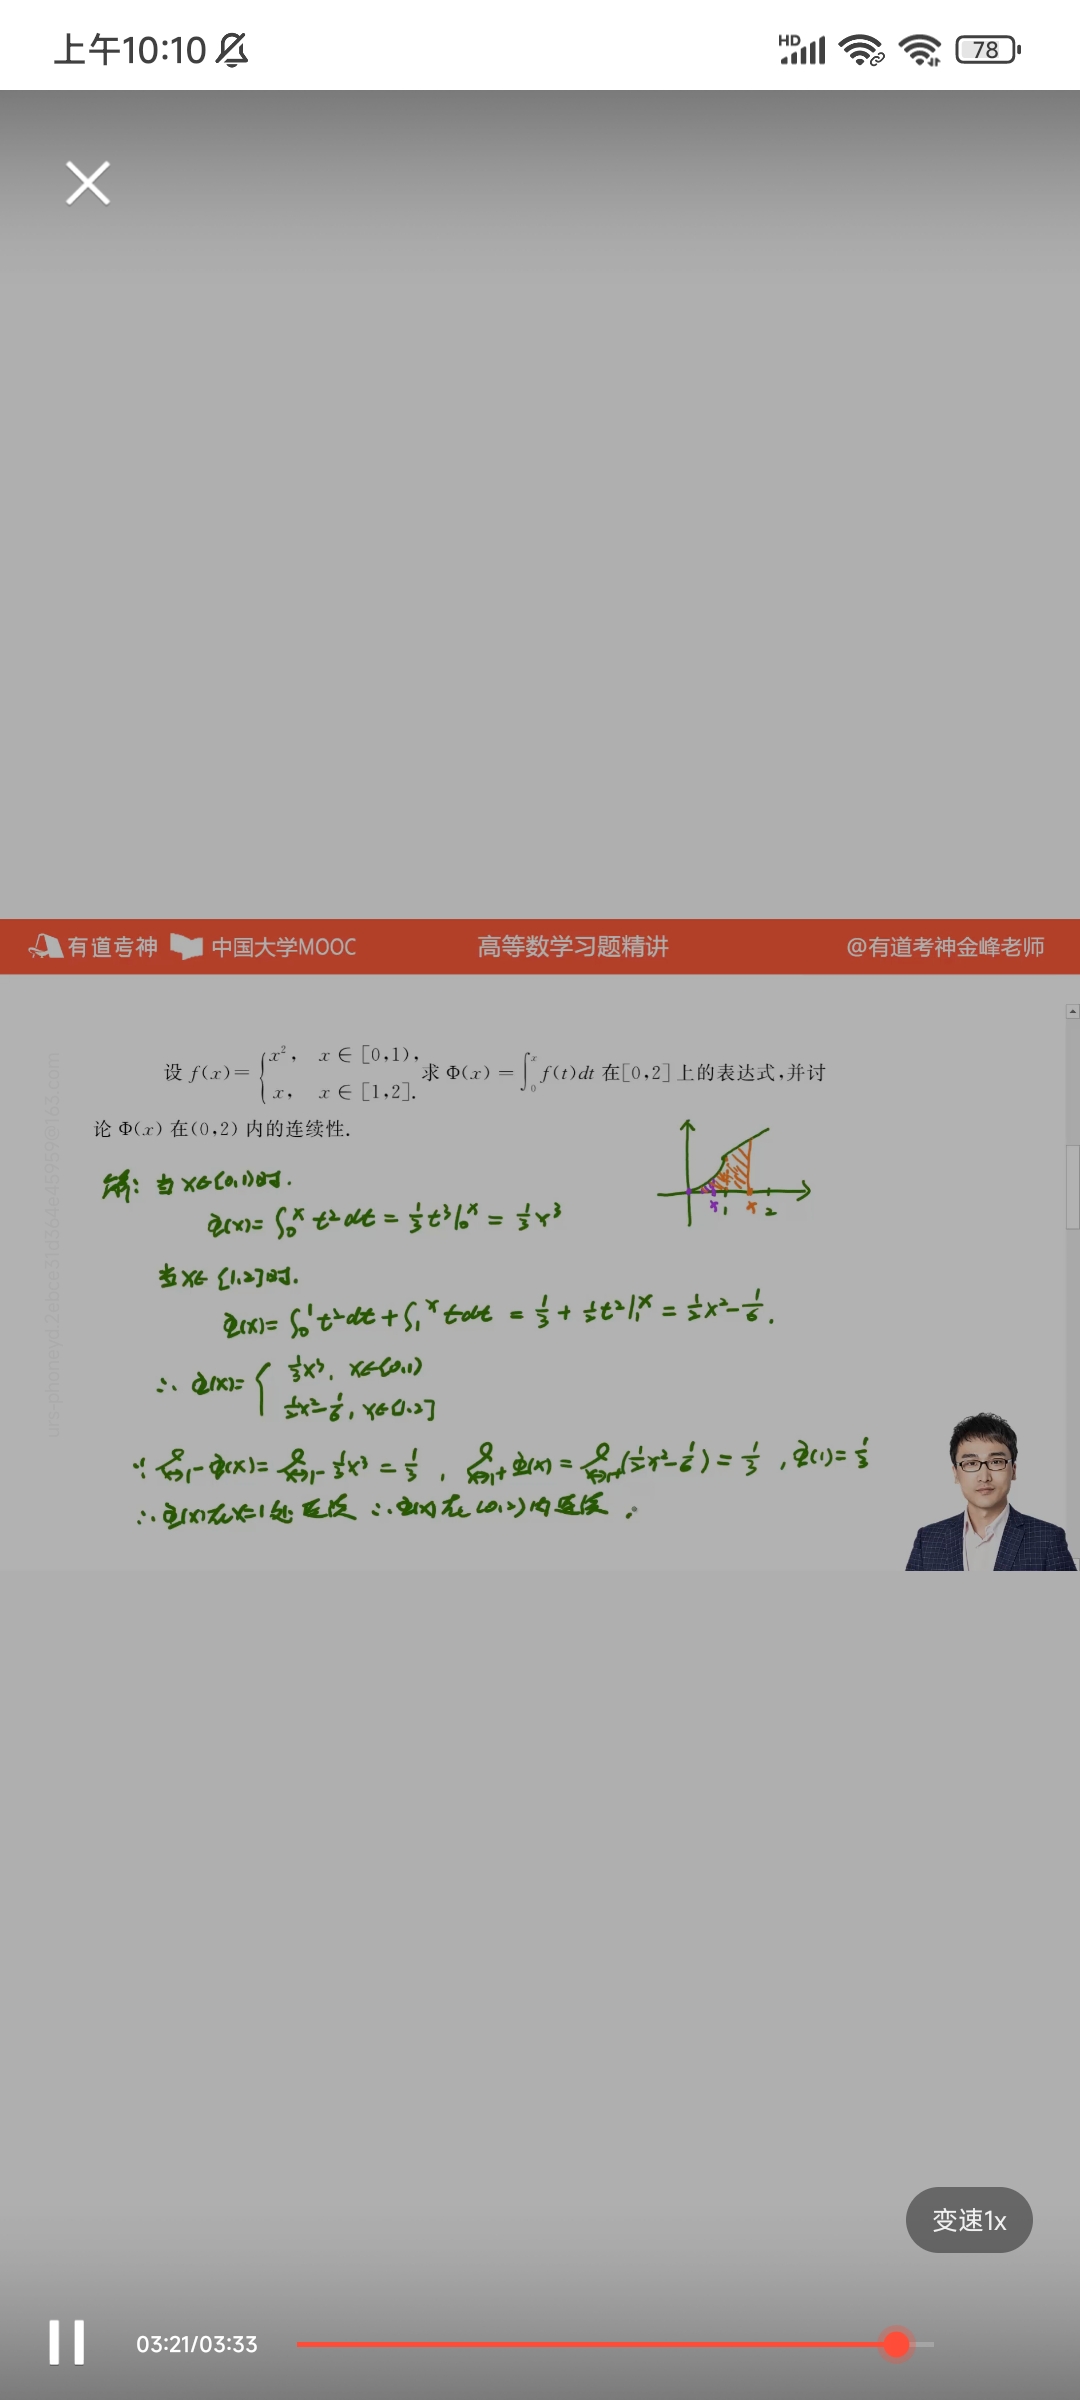 上午10:10 HD 78
有道考神 中国大学MOOC 高等数学习题精讲 @有道考神金峰老师
设 f(x)= { x², x∈[0,1), x, x∈[1,2]. 求 Φ(x)=∫₀ˣ f(t)dt 在[0,2]上的表达式,并讨
论 Φ(x) 在(0,2) 内的连续性.
解: 当 x∈[0,1)时.
Φ(x)= ∫₀ˣ t²dt = 1/3 t³|₀ˣ = 1/3 x³
当 x∈ [1,2]时.
Φ(x)= ∫₀¹ t²dt + ∫₁ˣ t dt = 1/3 + 1/2 t²|₁ˣ = 1/2 x² - 1/6 .
∴ Φ(x)= { 1/3 x³, x∈[0,1)
1/2 x² - 1/6, x∈[1,2]
∵ lim x→1⁻ Φ(x)= lim x→1⁻ 1/3 x³ = 1/3 , lim x→1⁺ Φ(x) = lim x→1⁺ (1/2 x² - 1/6) = 1/3 , Φ(1)= 1/3
∴ Φ(x)在x=1处 连续 ∴ Φ(x) 在 (0,2) 内 连续 .
x 1 x 2
变速1x
03:21/03:33